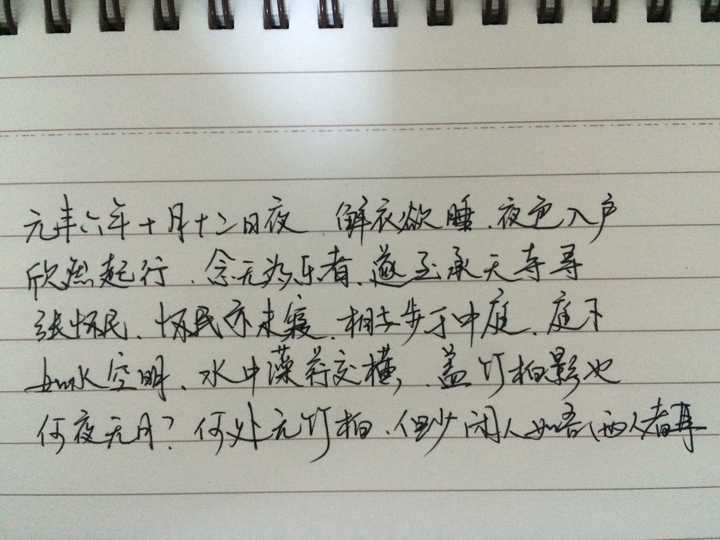 元丰六年十月十二日夜 解衣欲睡、夜色入户
欣然起行、念无为乐者、遂至承天寺寻
张怀民、怀民亦未寝、相与步于中庭、庭下
如水空明、水中藻荇交横，盖竹柏影也
何夜无月？何处无竹柏、但少闲人如吾两人者耳